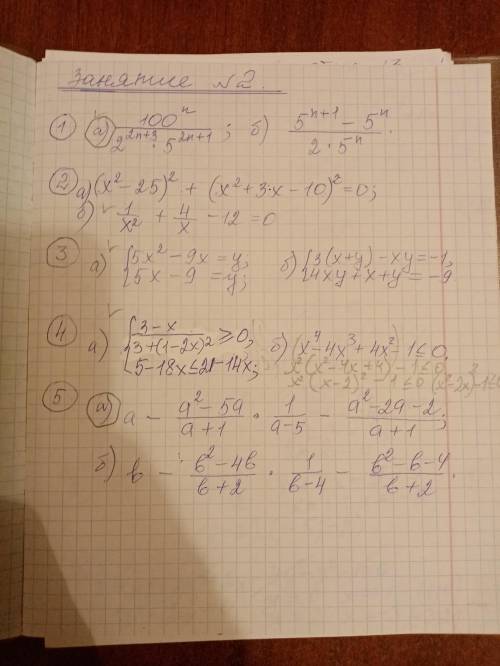 Занятие №2.
① ⓐ) 100ⁿ / (2^(2n+3) · 5^(2n+1)); б) (5^(n+1) − 5ⁿ) / (2 · 5ⁿ).
② а) (x² − 25)² + (x² + 3·x − 10)² = 0;
б) 1/x² + 4/x − 12 = 0
③ а) { 5x² − 9x = y, б) { 3(x+y) − xy = −1,
5x − 9 = y; 4xy + x + y = −9
④ а) { (3−x) / (3+(1−2x)²) ≥ 0, б) (x⁴ − 4x³ + 4x²) − 1 ≤ 0.
5 − 18x ≤ 21 − 14x; x²(x² − 4x + 4) − 1 ≤ 0
x²(x−2)² − 1 ≤ 0
⑤ ⓐ) a − (a² − 5a)/(a+1) · 1/(a−5) − (a² − 2a − 2)/(a+1);
б) b − (b² − 4b)/(b+2) · 1/(b−4) − (b² − b − 4)/(b+2).